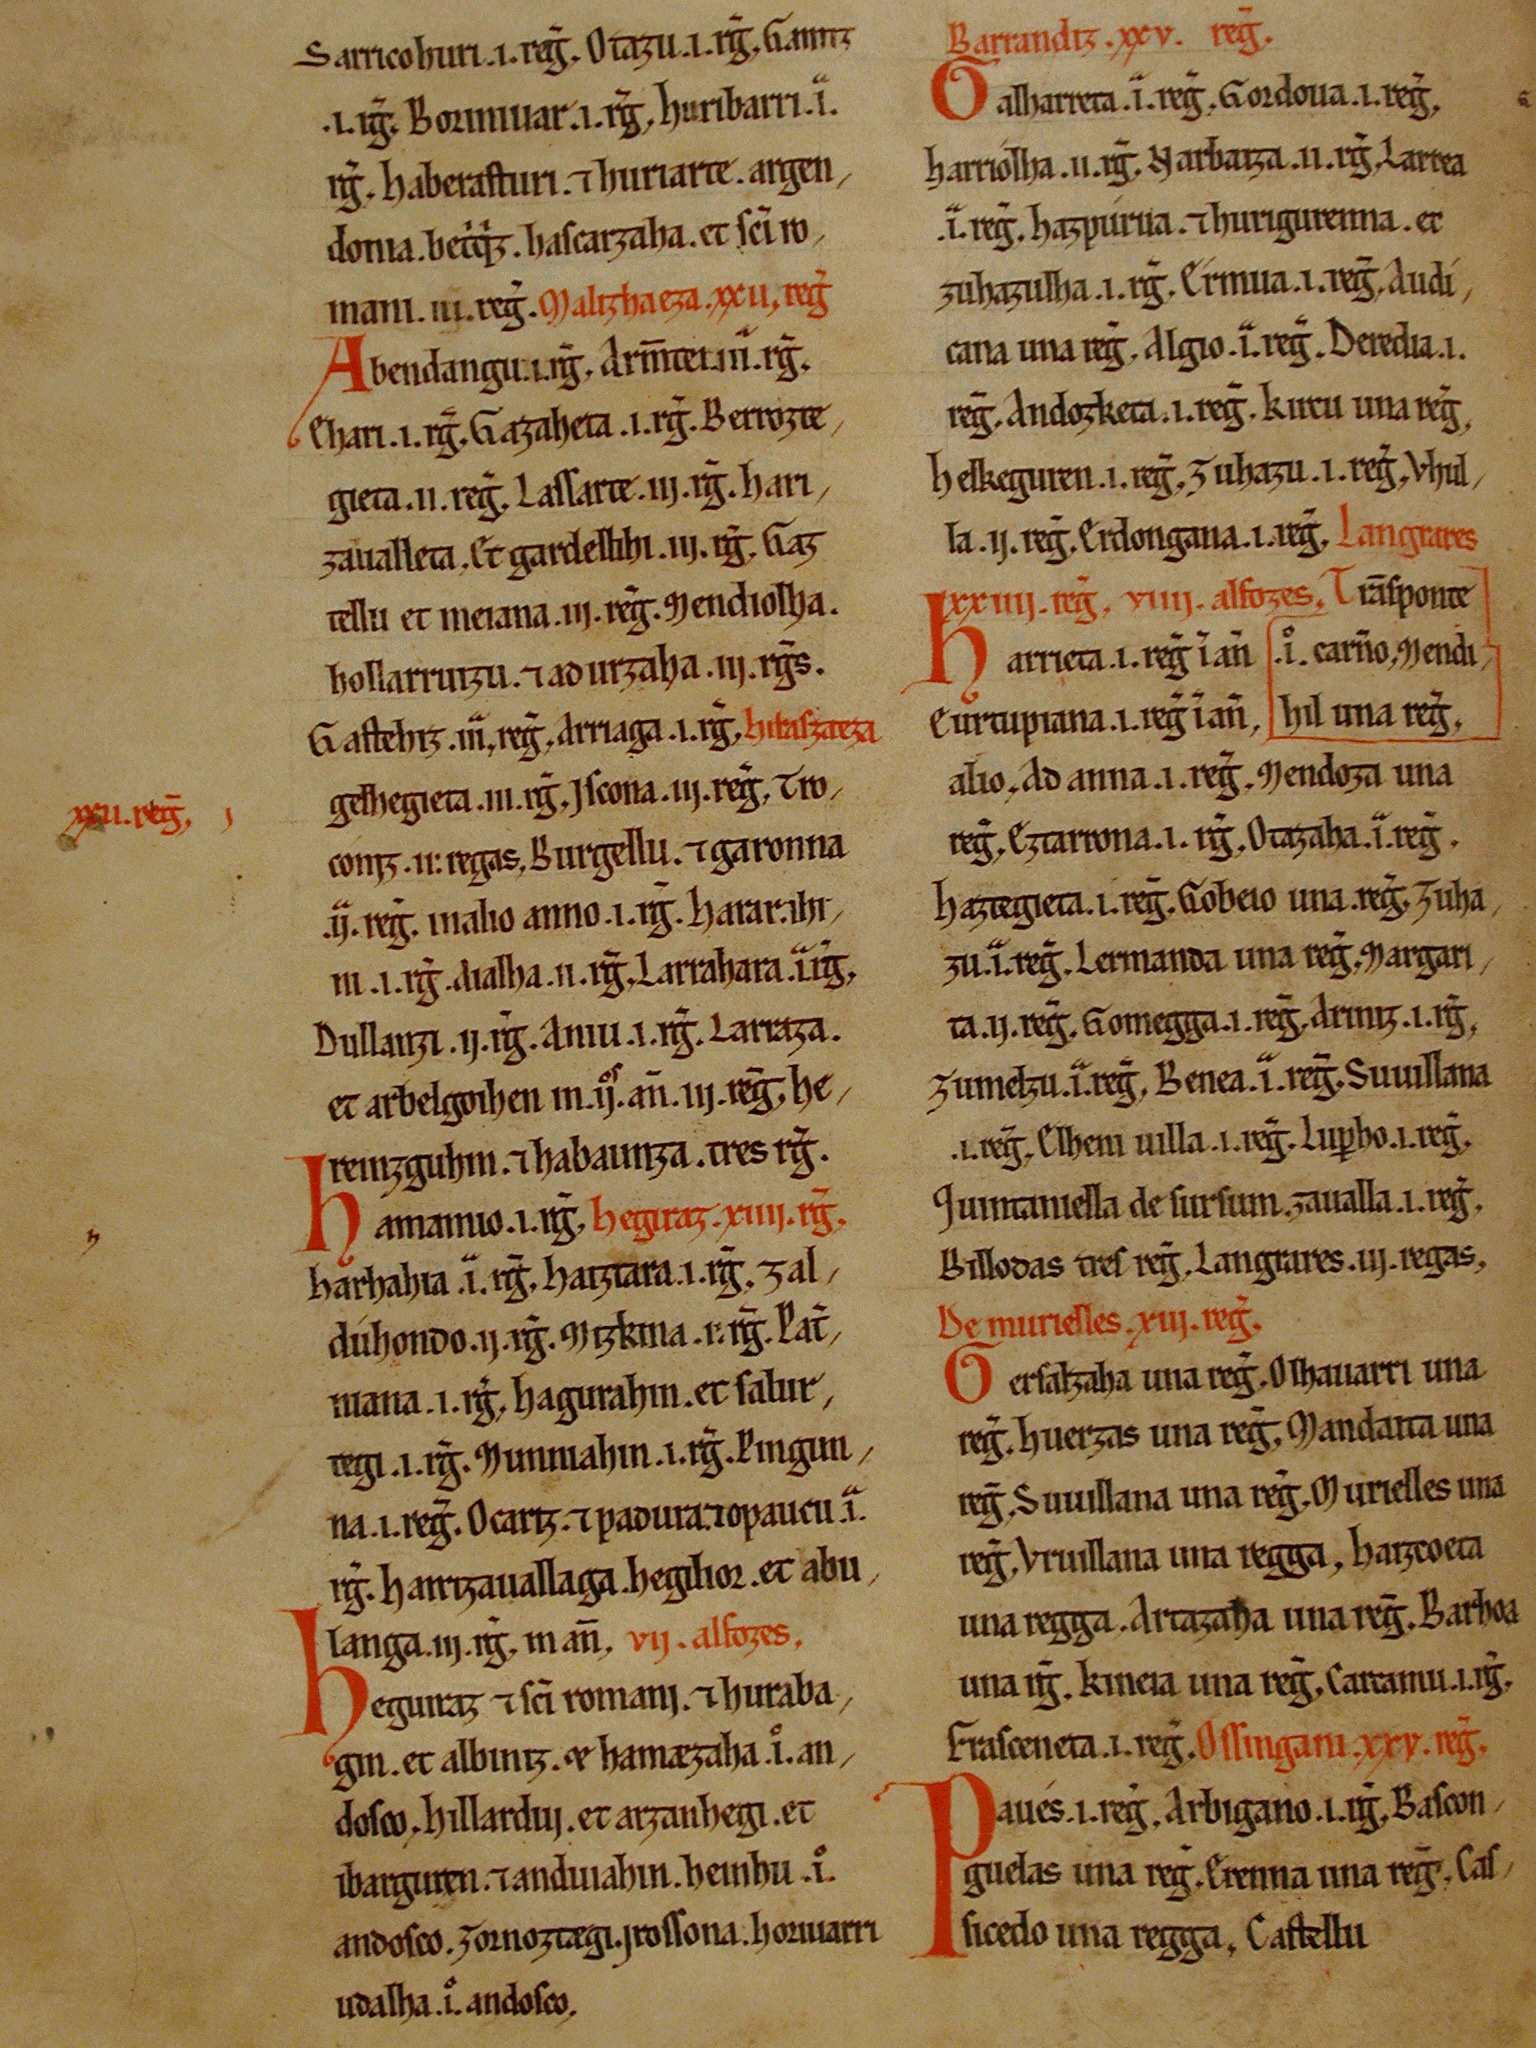 Sarricohuri .i. reg̃. Otazu .i. rg̃, Gamiz
.i. rg̃. Borinivar .i. rg̃, huribarri .i.
rg̃. haberasturi. ⁊ huriarte. argen,
donia. betriq̃z. hascarzaha. et sc̃i ro,
mani .iii. reg̃. Malizhaeza .xxii, reg̃
Abendangu .i. rg̃, Arm̃tei .iii. rg̃.
Ehari .i. rg̃, Gazaheta .i. rg̃. Berrozte,
gieta .ii. reg̃, Lassarte .iij. rg̃. hari,
zaualleta, Et gardellihi .iii. rg̃, Gaz
tellu et meiana .iii. reg̃. Mendiolha.
hollarruizu. ⁊ adurzaha .iii. rg̃s.
Gastehiz .iii, reg̃, Arriaga .i. rg̃, hiraszaeza
xxii. reg̃,
gelhegieta .iii. rg̃, Iscona .iii. reg̃, Tro,
coniz .ii. regas, Burgellu. ⁊ garonna
.ij. reg̃. in alio anno .i. rg̃. harar:ihi,
ni .i. rg̃. Aialha .ii. rg̃, Larrahara .i. rg̃,
Dullanzi .ij. rg̃. Aniu .i. rg̃. Larraza.
et arbelgoihen in .ij.os añ .iij. reg̃, he,
reinzguhin. ⁊ habaunza. tres rg̃.
hamamio .i. rg̃, hegiraz .xiiii. rg̃.
harhahia .i. rg̃, haiztara .i. rg̃, zal,
duhondo .ij. rg̃. Mizkina .i. rg̃. Pat̃,
niana .i. rg̃, hagurahin. et salur,
regi .i. rg̃. Munniahin .i. rg̃. Pingun,
na .i. reg̃. Ocariz. ⁊ padura. ⁊ opaucu .i.
rg̃. harrizauallaga. hegilior. et abu,
langa .iij. rg̃, in añ, vij. alfozes.
heguiraz ⁊ sc̃i romani. ⁊ huraba,
gin. et albiniz. et hamæzaha .i.o an,
dosco, hillarduj. et arzanhegi. et
ibarguren. ⁊ anduiahin. heinhu .i.o
andosco. Zornoztægi. Irossona. horiuarri
udalha .i.o andosco.
Barrandiz .xxv. reg̃.
Galharreta .i. reg̃, Gordoua .i. reg̃,
harriolha .ii. rg̃. Narbaiza .ii. rg̃, Larrea
.i. reg̃. hazpurua. ⁊ hurigurenna. et
zuhazulha .i. rg̃. Ermua .i. reg̃, Audi,
cana una reg̃. Algio .i. reg̃. Deredia .i.
reg̃. Andozketa .i. reg̃. Kircu una reg̃,
helkeguren .i. reg̃, Zuhazu .i. reg̃, Vhul,
la .ij. reg̃. Erdongana .i. reg̃. Langrares
xxiiii. reg̃, viiii. alfozes, Trañsponte
harrieta .i. reg̃ i añ .i.o carño, Mendi,
Eurtupiana .i. reg̃ i añ, hil una reg̃,
alio, Ad anna .i. reg̃. Mendoza una
reg̃, Eztarrona .i. rg̃, Otazaha .i. reg̃.
haztegieta .i. reg̃. Gobeio una reg̃. Zuha,
zu .i. reg̃. Lermanda una reg̃, Margari,
ta .ij. reg̃. Gomegga .i. reg̃, Ariniz .i. rg̃,
Zumelzu .i. reg̃, Benea .i. reg̃. Suuillana
.i. reg̃, Elheni uilla .i. reg̃. Lupho .i. reg̃,
Quintaniella de sursum. zaualla .i. reg̃,
Billodas tres reg̃, Langrares .iij. regas,
De murielles .xiij. reg̃.
Gersalzaha una reg̃. Olhauarri una
reg̃, huerzas una reg̃, Mandaita una
reg̃, Suuillana una reg̃, Murielles una
reg̃, Vruillana una regga, haizcoeta
una regga. Artazaha una reg̃. Barhoa
una rg̃. Kineia una reg̃, Carcamu .i. rg̃,
Frasceneta .i. reg̃. Ossingani .xxv. reg̃.
Paues .i. reg̃, Arbigano .i. rg̃, Bascon,
guelas una reg̃, Erenna una reg̃, Cas,
sicedo una regga, Castellu